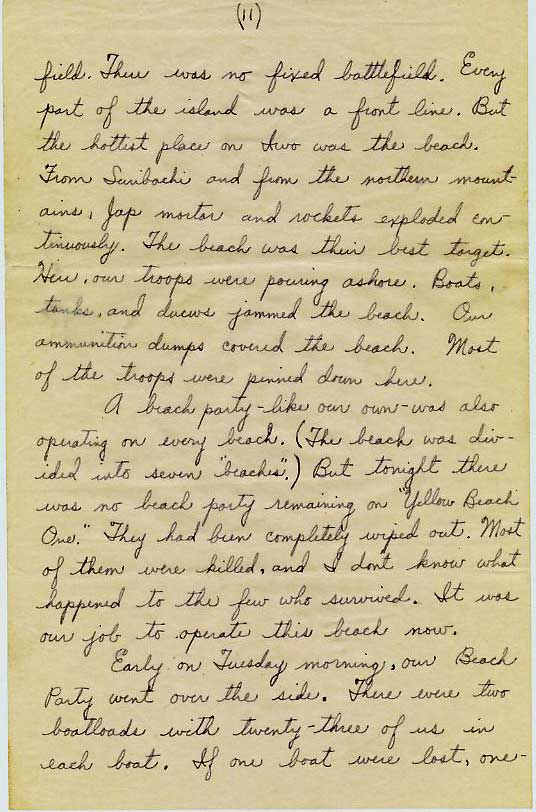 (11)
field. There was no fixed battlefield. Every
part of the island was a front line. But
the hottest place on Iwo was the beach.
From Suribachi and from the northern mount-
ains, Jap mortar and rockets exploded con-
tinuously. The beach was their best target.
Here, our troops were pouring ashore. Boats,
tanks, and ducws jammed the beach. Our
ammunition dumps covered the beach. Most
of the troops were pinned down here.
A beach party-like our own-was also
operating on every beach. (The beach was div-
ided into seven "beaches".) But tonight there
was no beach party remaining on "Yellow Beach
One." They had been completely wiped out. Most
of them were killed, and I don't know what
happened to the few who survived. It was
our job to operate this beach now.
Early on Tuesday morning, our Beach
Party went over the side. There were two
boatloads with twenty-three of us in
each boat. If one boat were lost, one-